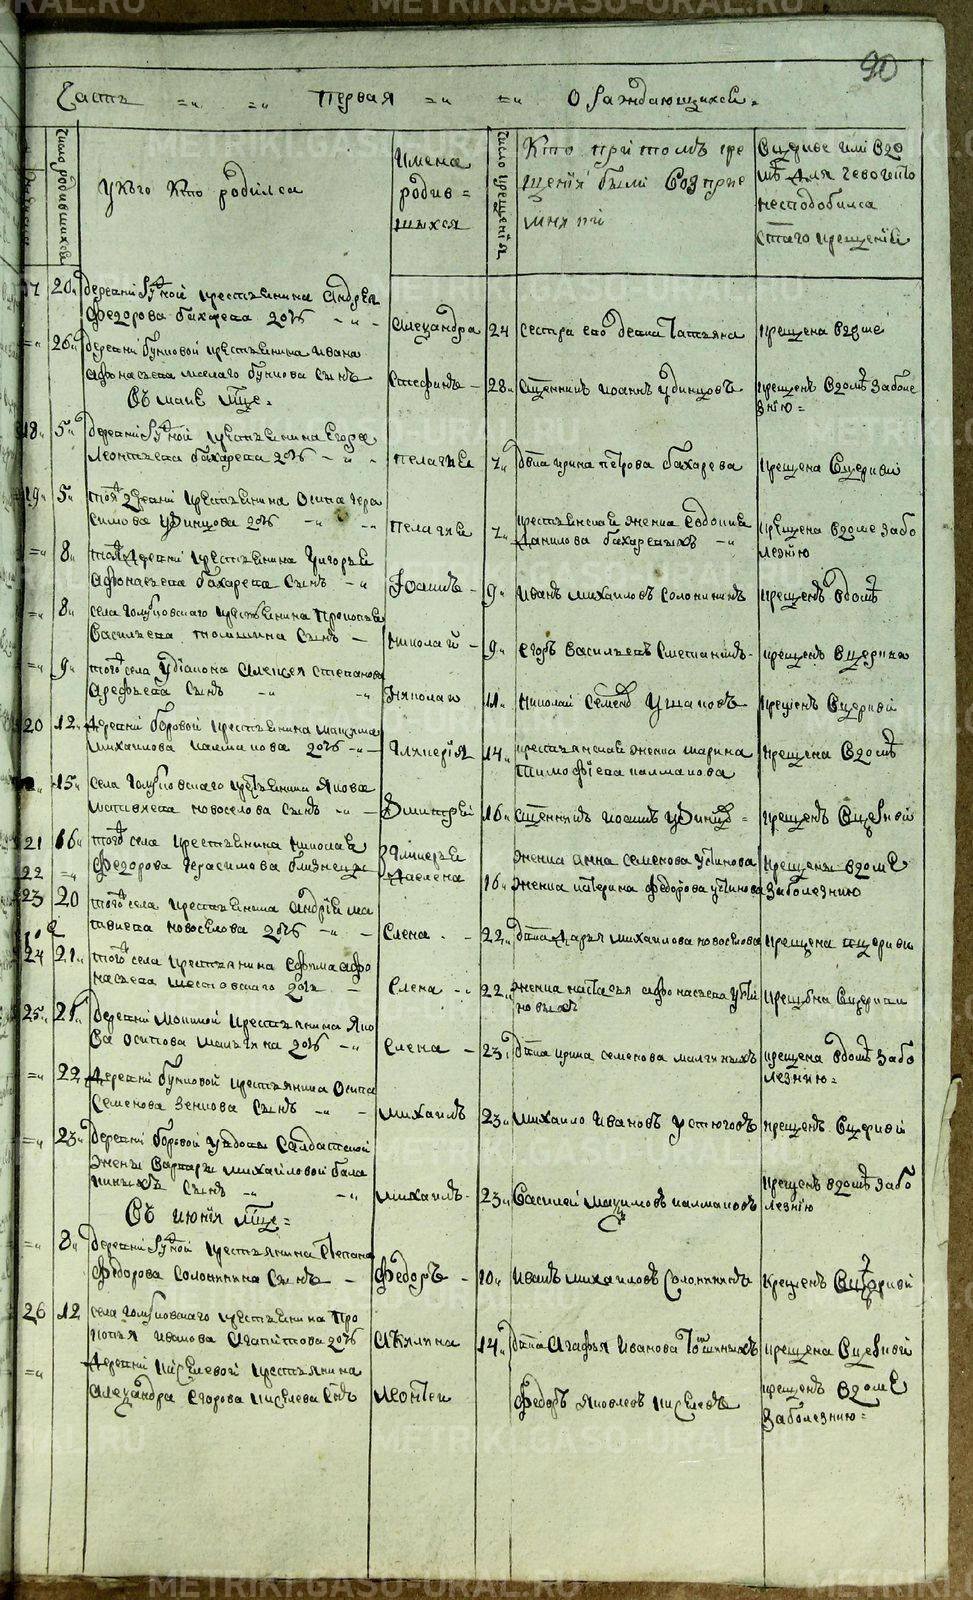 90
Часть =„ =„ первая =„ =„ О раждающихся =
число родившихся
укого кто родился
имена
родив=
шихся
число крещенїя
Кто при томъ кре
щенїи были воспрїе
мники
В церкве или в до
мѣ для чего кто
несподобился
стаго крещенїя
20 деревни крестьянина Андрея
Федорова бахарева дочь
Александра 24 сестра его девка Татьяна крещена в доме
26 деревни буньковой крестьянина ивана
афонасьева малаго бунькова сынъ
Стефанъ 28 сщенникъ иоаннъ удинцовъ крещенъ в домѣ заболе
знїю =
Въ маие мце =
18 5 деревни крестьянина егора
леонтьева бахарева дочь
пелагия 7 двка ирина петрова бахарева крещена в церкви
19 5 тояж деревни крестьянина осипа гера
симова удинцова дочь
пелагия 7 крестьянская женка евдокия
данилова бахаревыхъ крещена в доме забо
лезнїю
8 тояж деревни крестьянина григорья
афонасьева бахарева сынъ
Иоаннъ 9 иванъ михаиловъ солонининъ крещенъ в домѣ
8 села голубковскаго крестьянина прокопья
васильева сынъ
николай 9 егоръ васильевъ сметанинъ крещенъ в церкви
9 тогож села удьякона алексея степанова
арефьева сынъ
николаи 11 николай семенов ушаковъ крещенъ в церкви
20 12 деревни боровой крестьянина максима
михаилова калмакова дочь
гликерїя 14 крестьянская женка марина
тимофїева калмакова крещена в домѣ
15 села голубковскаго крестьянина якова
матвиева новоселова сынъ
Димитрей 16 сщенникъ иоаннъ удинцов = крещенъ в церквой
21 16 тогож села крестьянина николая
22 федорова герасимова близнецы
гликерья
павлена 16 женка анна семенова устинова
женка катерина федорова устинова крещены в доме
заболезнию
23 20 тогож села крестьянина андрїя ма
твиева новосїлова дочь
елена 22 двка дарья михаилова новоселова крещена в церкви
24 21 тогож села крестьянина ефима афо
насьева шестовскаго дочь
елена 22 женка настасья афонасьева усти
новыхъ крещена в церкви
25 21 деревни мокиной крестьянина яко
ва осипова малыгина дочь
елена 23 двка ирина семенова малгиныхъ крещена в домѣ забо
лезнїю =
22 деревни буньковой крестьянина осипа
семенова зенкова сынъ
михаилъ 23 михаило ивановъ устюговъ крещенъ в церквїй
23 деревни боровой увдовы салдатской
жены варвары михаиловой бала
киныхъ сынъ
михаилъ 23 василей максимовъ калмаковъ крещенъ в домѣ забо
лезнїю
Въ июнїя мце =
8 деревни крестьянина степана
федорова солонинина сынъ
Федоръ 10 иванъ михаиловъ солонининъ крещенъ в церквий
26 12 села голубковскаго крестьянина про
копья иванова агапитова дочь
акилина 14 двка агафья иванова крещена в церквий
деревни киселевой крестьянина
александра егорова киселева снъ
леонтеи Федоръ яковлевъ киселевъ крещенъ в доме
заболезнию =